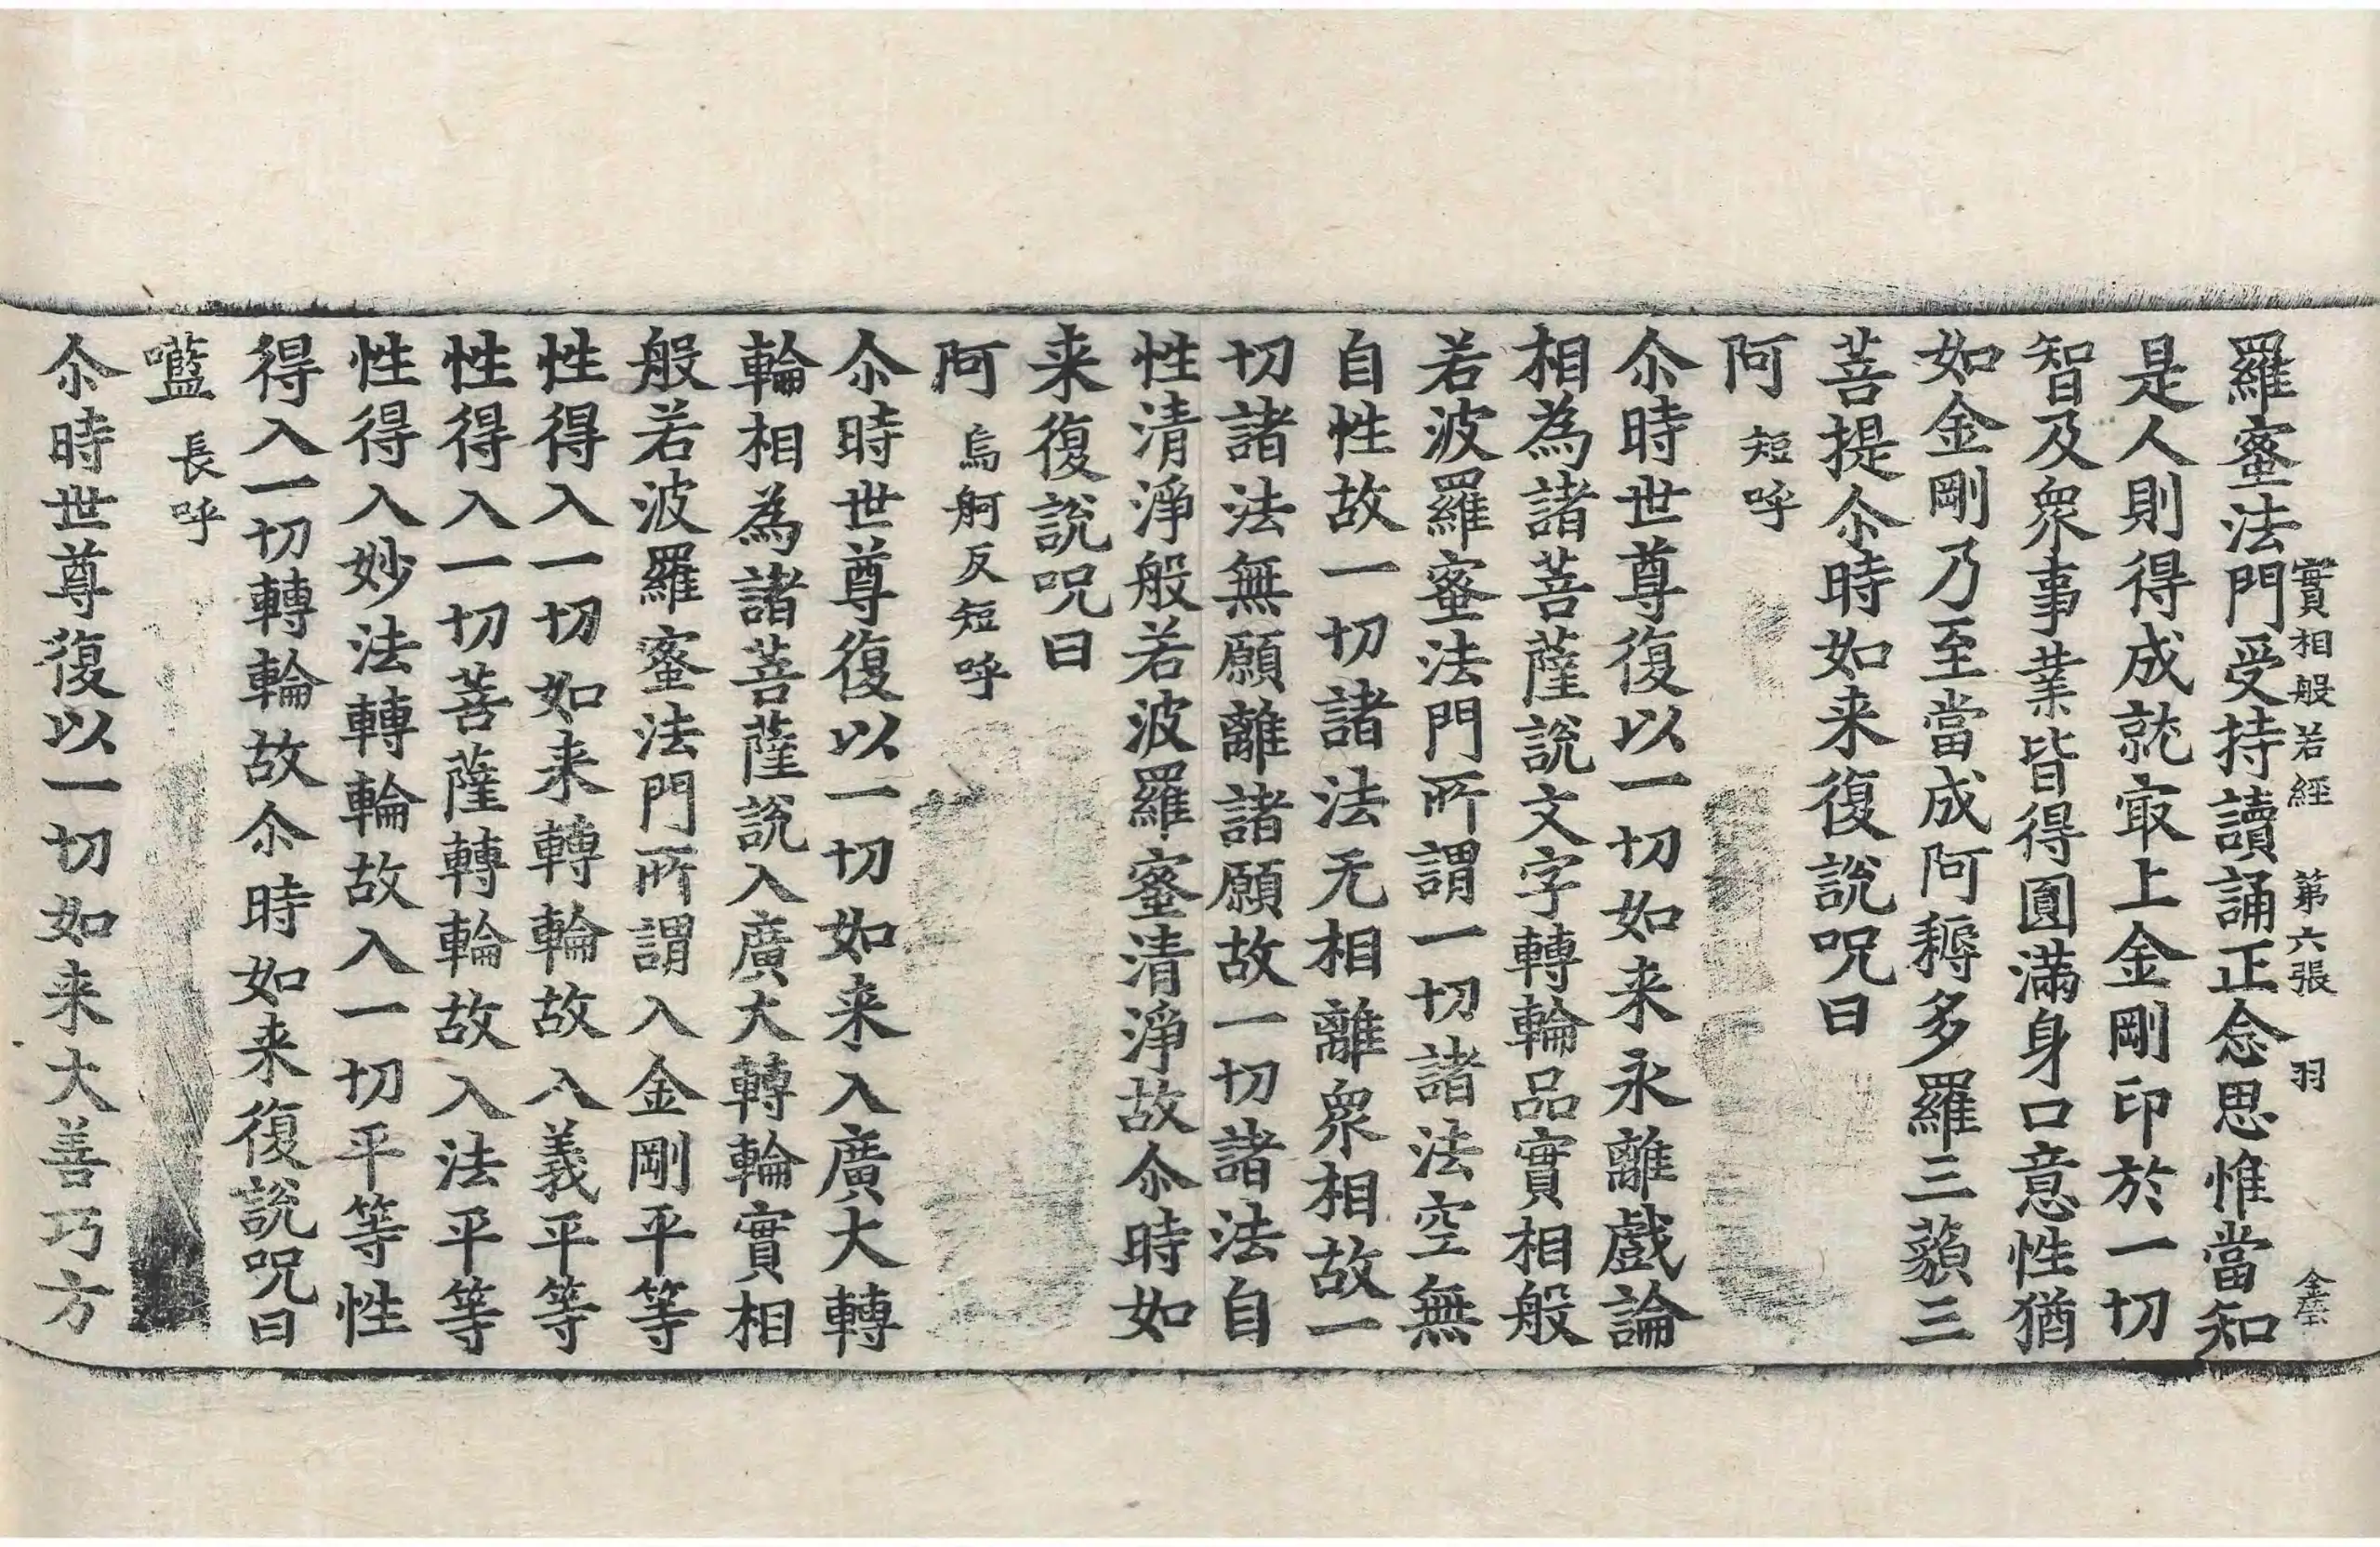 實相般若經 第六張 羽
羅蜜法門受持讀誦正念思惟當知
是人則得成就㝡上金剛印於一切
智及衆事業皆得圓滿身口意性猶
如金剛乃至當成阿耨多羅三藐三
菩提尒時如来復說呪曰
阿 短呼
尒時世尊復以一切如来永離戲論
相為諸菩薩說文字轉輪品實相般
若波羅蜜法門所謂一切諸法空無
自性故一切諸法无相離衆相故一
切諸法無願離諸願故一切諸法自
性清淨般若波羅蜜清淨故尒時如
来復說呪曰
阿 烏舸反短呼
尒時世尊復以一切如来入廣大轉
輪相為諸菩薩說入廣大轉輪實相
般若波羅蜜法門所謂入金剛平等
性得入一切如来轉輪故入義平等
性得入一切菩薩轉輪故入法平等
性得入妙法轉輪故入一切平等性
得入一切轉輪故尒時如来復說呪曰
㘕 長呼
尒時世尊復以一切如来大善巧方